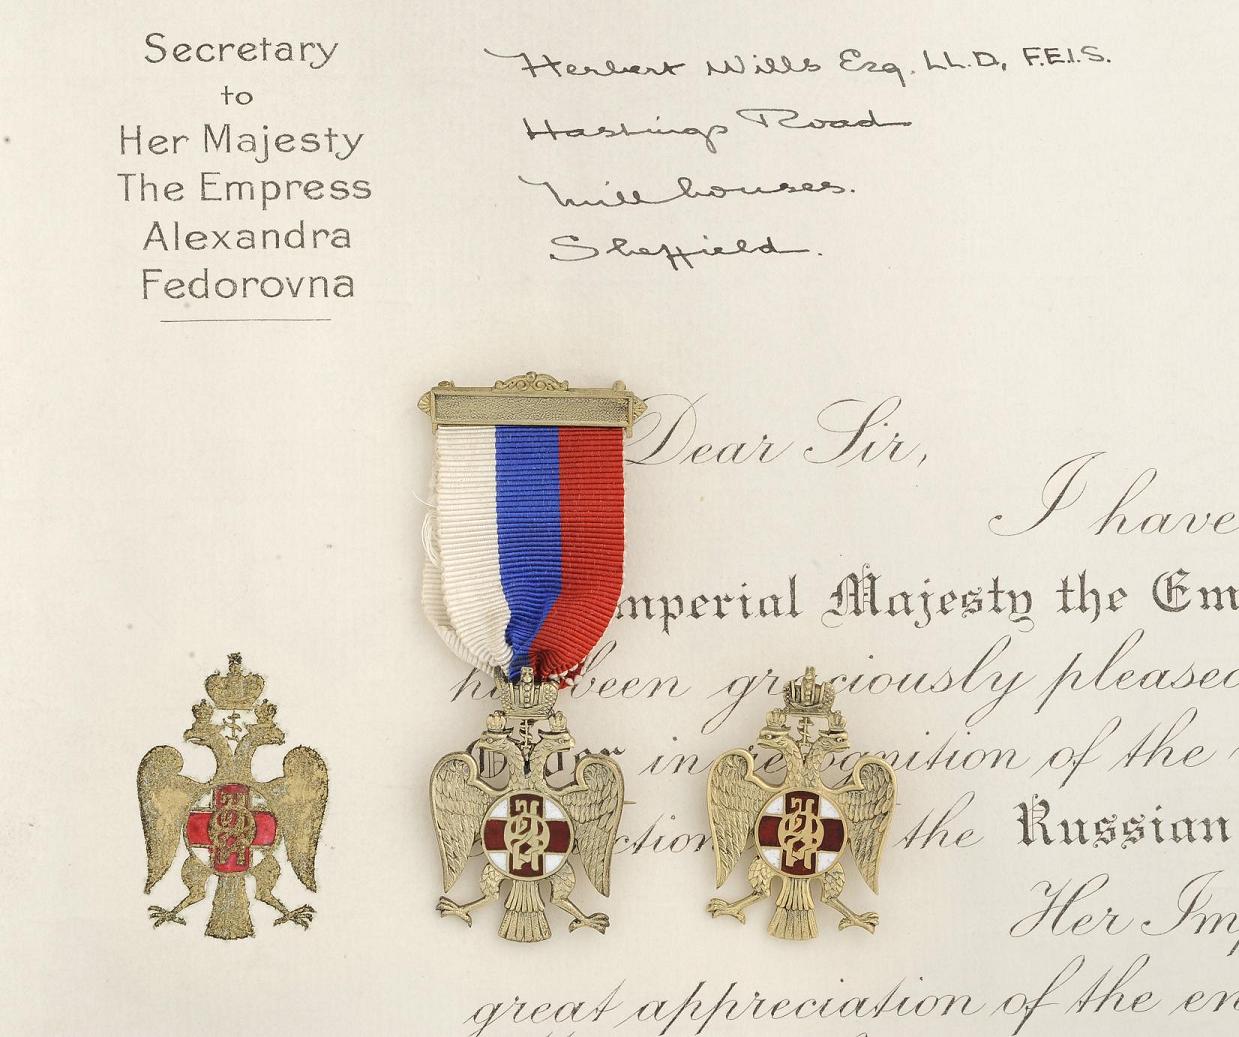 Secretary
to
Her Majesty
The Empress
Alexandra
Fedorovna
Herbert Wills Esq. LL.D, F.E.I.S.
Hastings Road
Millhouses.
Sheffield.
Dear Sir,
I have
mperial Majesty the Em
been graciously pleased
in recognition of the
ction the Russian
Her Imp
great appreciation of the en